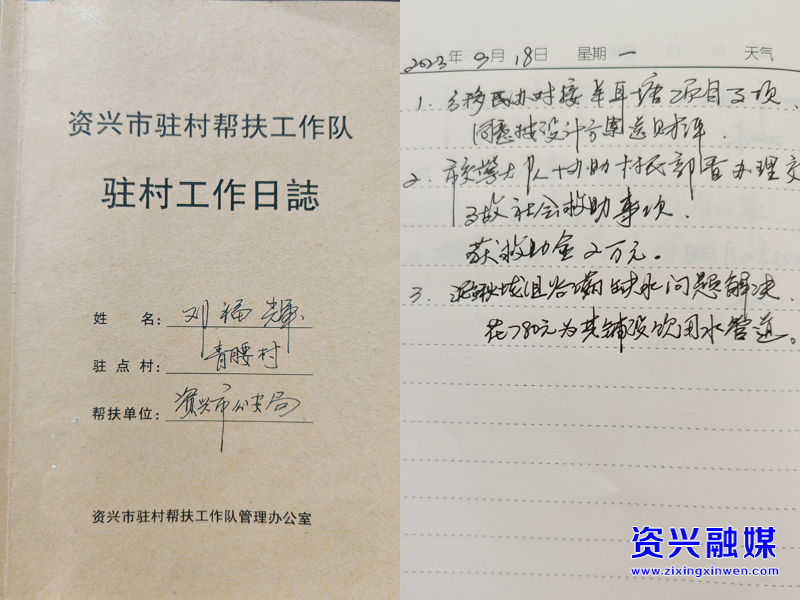 资兴市驻村帮扶工作队
驻村工作日誌
姓 名: 刘福辉
驻 点 村: 青腰村
帮扶单位: 资兴市公安局
资兴市驻村帮扶工作队管理办公室
2023年 9月 18日 星期 一 天气
1. 移民办对接羊耳塘项目事项、
同意按设计方案送财评.
2. 市交警大队协助村民部看办理交
事故社会救助事项.
获救助金2万元。
3. 组 缺水问题解决.
花780元为其铺设饮用水管道。
资兴融媒
www.zixingxinwen.com